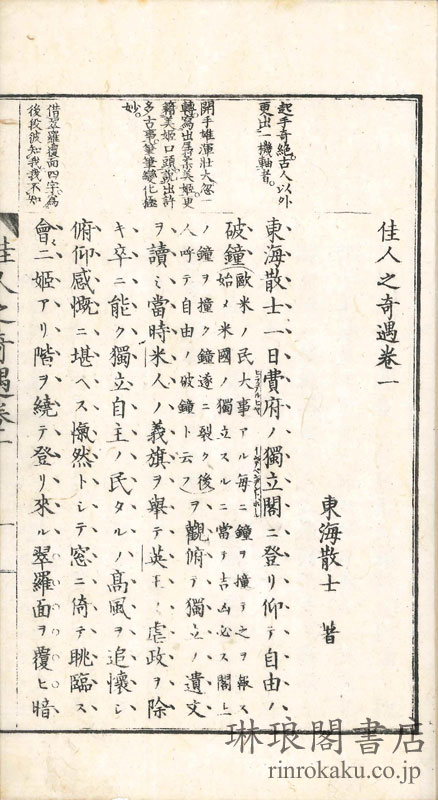 佳人之奇遇卷一
東海散士 著
東海散士一日費府ノ獨立閣ニ登リ仰テ自由ノ
破鐘 歐米ノ民大事アル每ニ鐘ヲ撞テ之ヲ報ス
始メ米國ノ獨立スルニ當テ吉凶必ス閣上
ノ鐘ヲ撞ク鐘遂ニ裂ク後
人呼テ自由ノ破鐘ト云フ ヲ觀俯テ獨立ノ遺文
ヲ讀ミ當時米人ノ義旗ヲ擧テ英王ノ虐政ヲ除
キ卒ニ能ク獨立自主ノ民タルノ高風ヲ追懷シ
俯仰感慨ニ堪ヘス愾然トシテ窓ニ倚テ眺臨ス
會二姬アリ階ヲ繞テ登リ來ル翠羅面ヲ覆ヒ暗
起手奇絕古人以外
更出一機軸者
開手雄渾壯大忽一
轉寫出
美姬更
美姬口頭說出許
多古事筆筆變化極
妙
借翠羅覆面四字爲
後段彼知我我不知
佳人之奇遇卷一
琳琅閣書店
rinrokaku.co.jp